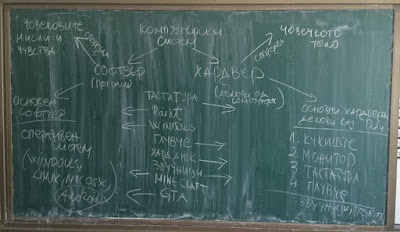 ЧОВЕКОВИТЕ
МИСЛИ И
ЧУВСТВА
КОМПЈУТЕРСКИ
СИСТЕМ
ЧОВЕЧКОТО
ТЕЛО
СПОРЕДБА
СПОРЕДБА
СОФТВЕР
(програми)
ХАРДВЕР
(делови од
компјутерот)
ОСНОВЕН
СОФТВЕР
ОПЕРАТИВЕН
СИСТЕМ
(WINDOWS,
LINUX, MAC OSX
Android)
ТАСТАТУРА
Paint
WINDOWS
ГЛУВЧЕ
ХАРД ДИСК
ЗВУЧНИЦИ
MINECRAFT
GTA
ОСНОВНИ ХАРДВЕРСКИ
ДЕЛОВИ
1. КУЌИШТЕ
2. МОНИТОР
3. ТАСТАТУРА
4. ГЛУВЧЕ
ЗВУЧНИЦИ